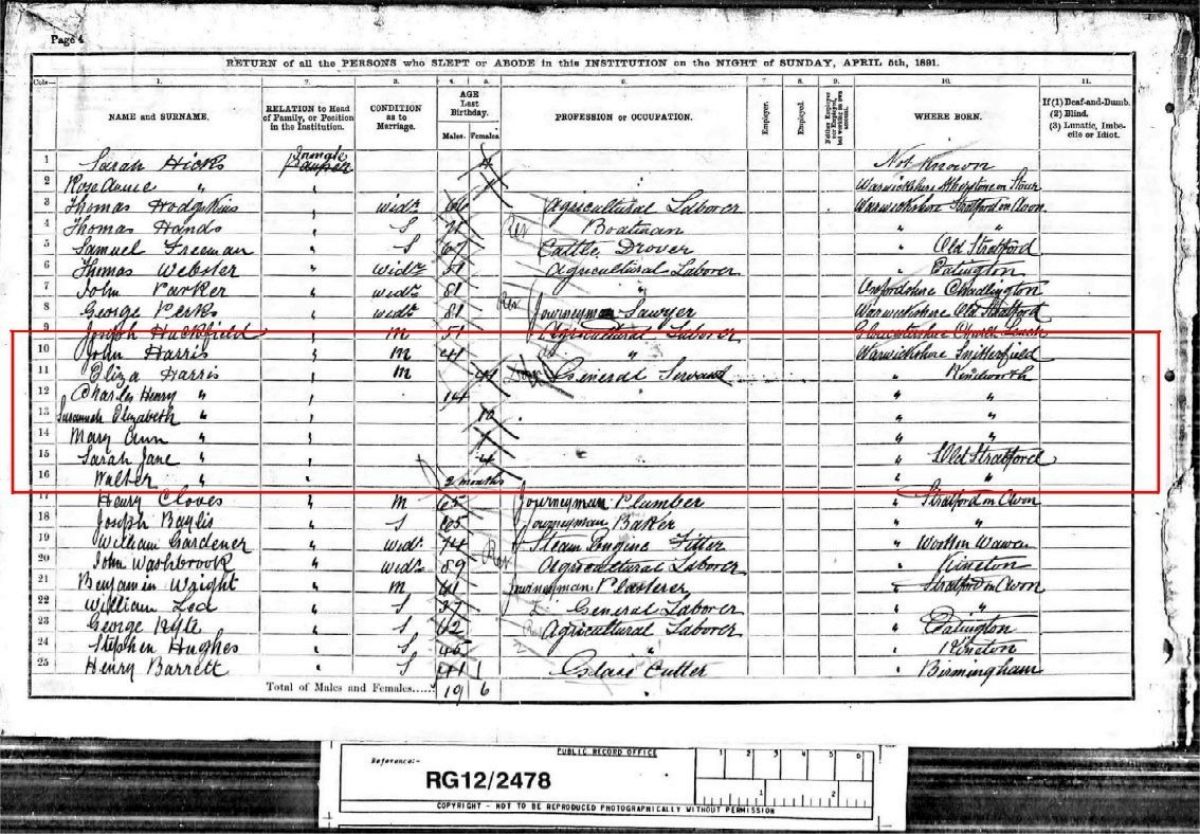 Page 4
RETURN of all the PERSONS who SLEPT or ABODE in this INSTITUTION on the NIGHT of SUNDAY, APRIL 5th, 1891.
1. 2. 3. 4. 5. 6. 7. 8. 9. 10. 11.
NAME and SURNAME. RELATION to Head of Family, or Position in the Institution. CONDITION as to Marriage. AGE Last Birthday. Males. Females. PROFESSION or OCCUPATION. Employer. Employed. WHERE BORN. If (1) Deaf-and-Dumb. (2) Blind. (3) Lunatic, Imbecile or Idiot.
1 Sarah Hicks Pauper Not Known
2 Rose Annie " " Warwickshire Atherstone on Stour
3 Thomas Hodgkins " widr. 66 Agricultural Laborer Warwickshire Stratford on Avon
4 Thomas Hands " S 71 Boatman " "
5 Samuel Freeman " S 67 Cattle Drover " Old Stratford
6 Thomas Webster " widr. 51 Agricultural Laborer " Eatington
7 John Parker " widr. 81 " Oxfordshire Chadlington
8 George Perks " widr. 81 Journeyman Sawyer Warwickshire Old Stratford
9 Joseph Huckfield " M 51 Agricultural Laborer Gloucestershire Church Lench
10 John Harris " M 41 " Warwickshire Snitterfield
11 Eliza Harris " M 41 General Servant "
12 Charles Henry " " 14 " "
13 Susannah Elizabeth " " 10 " "
14 Mary Ann " " 7 " "
15 Sarah Jane " " 4 " Old Stratford
16 Walter " " 2 months " "
17 Henry Cloves " M 65 Journeyman Plumber " Stratford on Avon
18 Joseph Baylis " S 65 Journeyman Baker " "
19 William Gardener " widr. 74 Steam Engine Fitter " Wootton Wawen
20 John Washbrook " widr. 89 Agricultural Laborer " Kineton
21 Benjamin Wright " M 61 Journeyman Plasterer " Stratford on Avon
22 William " S 37 General Laborer " "
23 George Hyte " S 62 Agricultural Laborer " Eatington
24 Stephen Hughes " S 45 " " Kineton
25 Henry Barrett " S 41 Glass Cutter " Birmingham
Total of Males and Females...... 19 6
PUBLIC RECORD OFFICE
Reference:-
RG12/2478
1 2 3 4 5 6
1 2
COPYRIGHT - NOT TO BE REPRODUCED PHOTOGRAPHICALLY WITHOUT PERMISSION